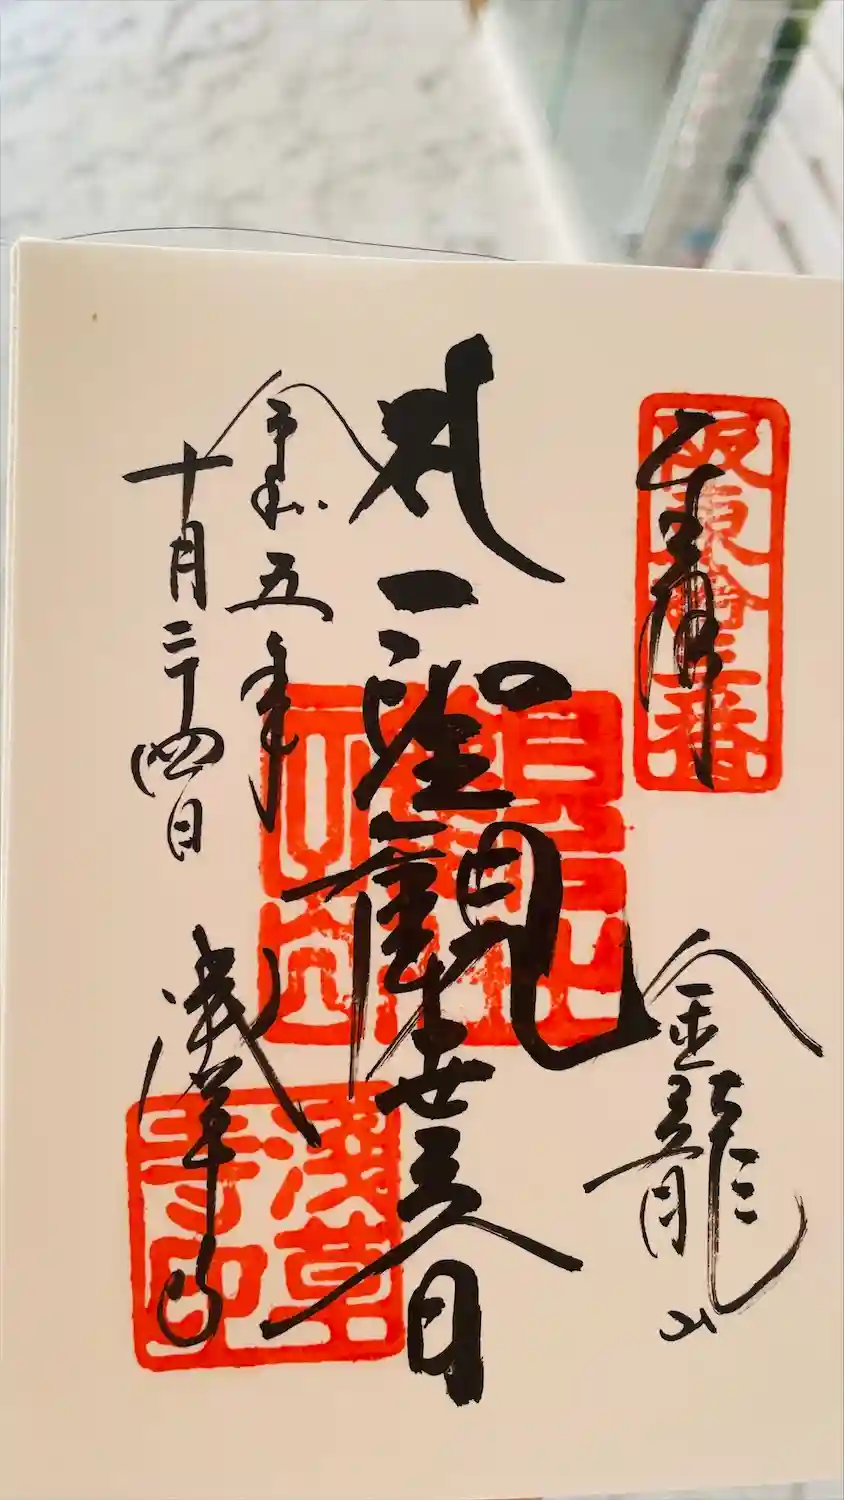 奉拝
阪東拾三番
金龍山
聖観世音
令和五年
十月二十四日
浅草寺
浅草寺印